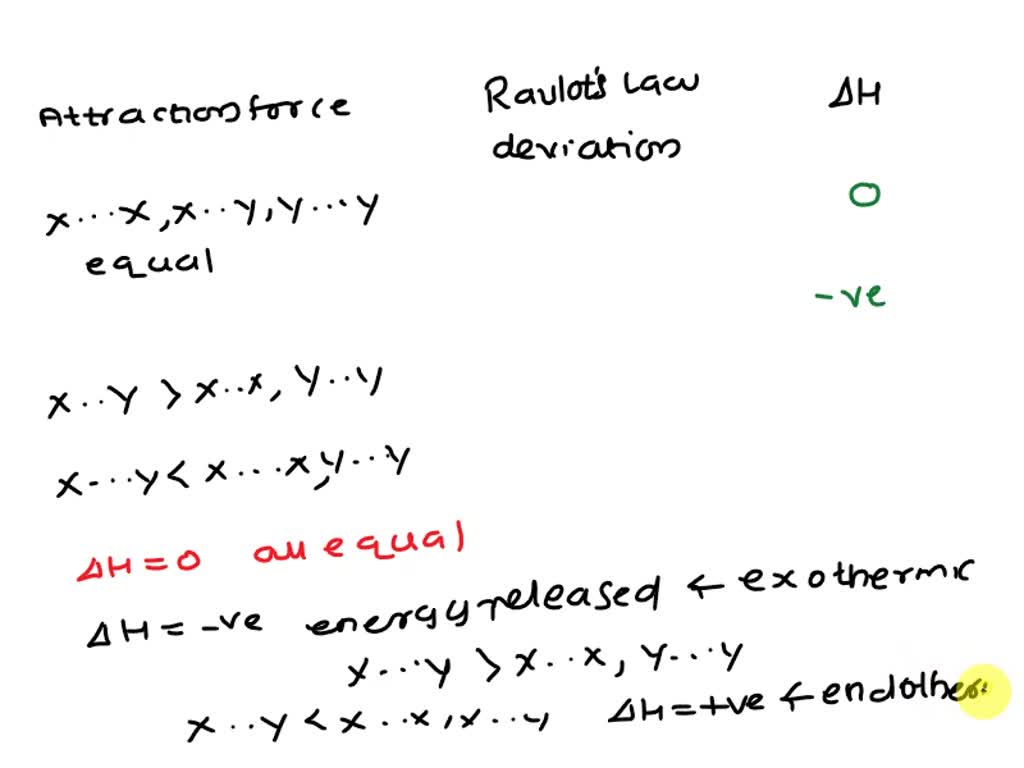 Attraction force
Ravlot's Law
deviation
ΔH
x...x, x..y, y...y
equal
0
-ve
x..y > x..x, y..y
x...y < x...x, y..y
ΔH = 0 all equal
ΔH = -ve energy released ← exothermic
x...y > x..x, y...y
x..y < x..x, x..y ΔH = +ve ← endother